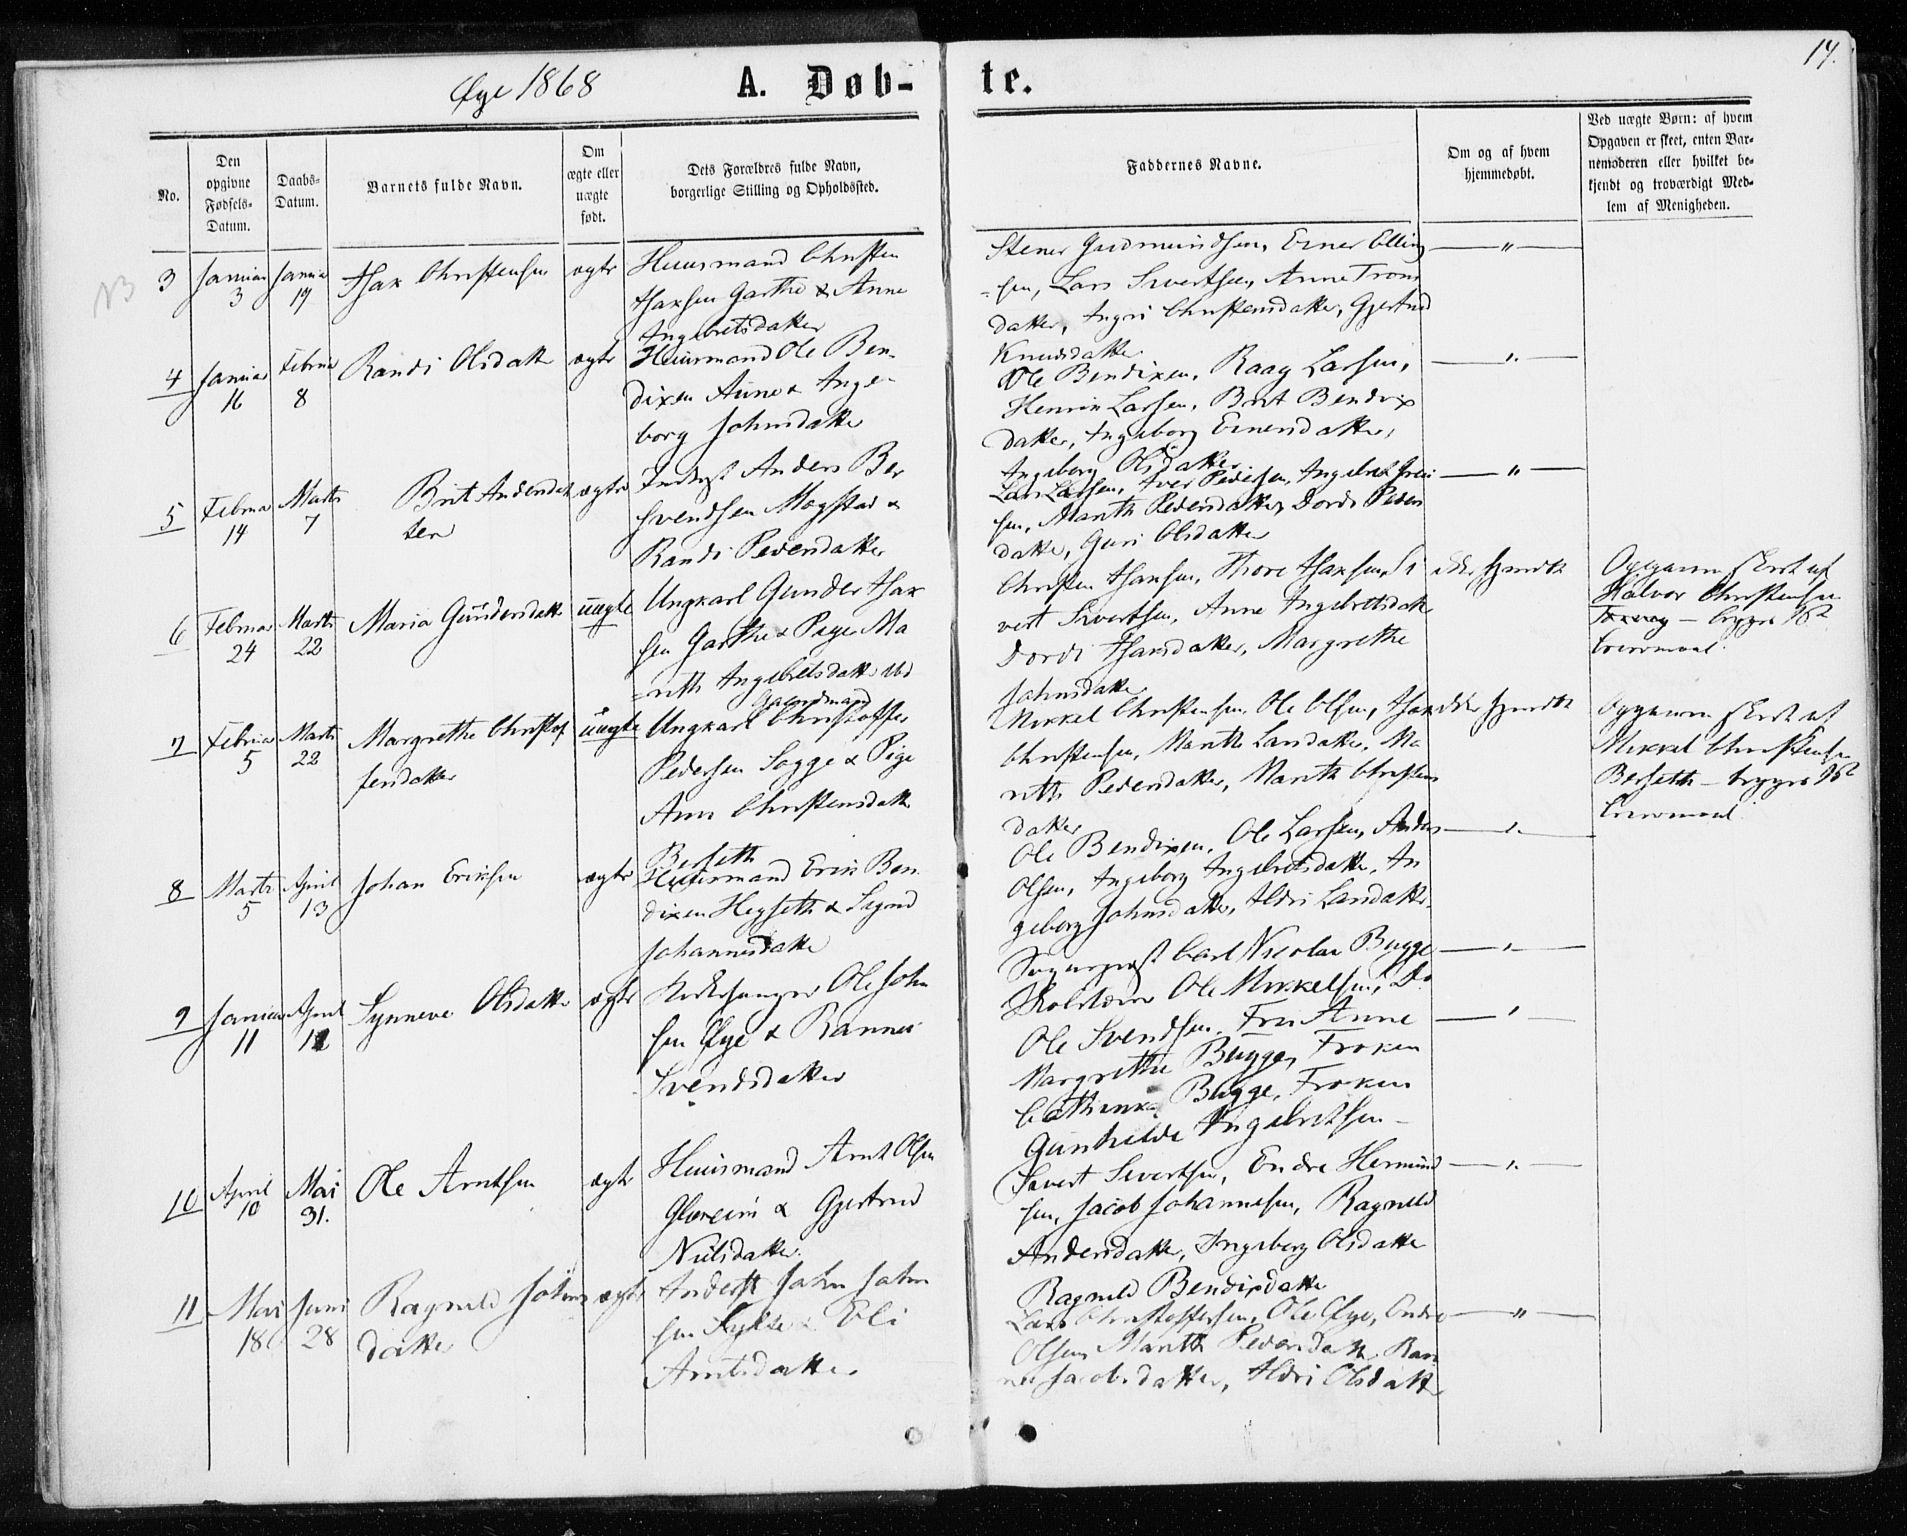 Øye 1868
A. Døb-
te.
14.
No.
Den
opgivne
Fødsels-
Datum.
Daabs-
Datum.
Barnets fulde Navn.
Om
ægte eller
uægte
født.
Dets Forældres fulde Navn,
borgerlige Stilling og Opholdssted.
Faddernes Navne.
Om og af hvem
hjemmedøbt.
Ved uægte Børn: af hvem
Opgaven er skeet, enten Bar-
nemoderen eller hvilket be-
kjendt og troværdigt Med-
lem af Menigheden.
NB
3
Januar
3
Januar
19
Isak Christensen
ægte
Huusmand Christen
Isaksen Garthe & Anne
Ingebretsdatter
Stener Gudmundsen, Einer Elling
sen, Lars Sivertsen, Anne Trons
datter, Ingri Christensdatter, Gjertrud
Knudsdatter
4
Januar
16
Februar
8
Randi Olsdatter
ægte
Huusmand Ole Ben-
dixen Aune & Inge-
borg Johnsdatter
Ole Bendixen, Raag Larsen,
Henrik Larsen, Brit Bendix
datter, Ingeborg Einersdatter,
Ingeborg Olsdatter
5
Februar
14
Marts
7
Brit Andersdat
ter
ægte
Inderst Anders Ber
Svendsen Mogstad &
Randi Pedersdatter
Lars Larsen, Iver Pedersen, Ingebret Iver
sen, Marith Pedersdatter, Dordi Peders
datter, Guri Olsdatter
6
Februar
24
Marts
22
Maria Gundersdatter
uægte
Ungkarl Gunder Isak
sen Garthe & Pige Ma
rith Ingebretsdatter ibd
Christen Isaksen, Thore Isaksen, Si
vert Sivertsen, Anne Ingebretsdatter
Dordi Isaksdatter, Margrethe
Johnsdatter
ikke hjemdøbt
Opgaven skeet af
Halvor Christensen
begges 1ste
Leiermaal.
7
Februar
5
Marts
22
Margrethe Christof
fersdatter
uægte
Gaardmand
Ungkarl Christoffer
Pedersen Sogge & Pige
Ann Christensdatter
Berseth
Mikkel Christensen, Ole Olsen, Isak
Christensen, Marith Larsdatter, Ma
rith Pedersdatter, Marith Christens
datter
ikke hjemdøbt
Opgaven skeet af
Mikkel Christensen
Berseth - begges 1ste
Leiermaal.
8
Marts
5
April
13
Johan Eriksen
ægte
Huusmand Erik Ben
dixen Hegseth & Sigrid
Johannesdatter
Ole Bendixen, Ole Larsen, Anders
Olsen, Ingeborg Ingebretsdatter, In
geborg Johnsdatter, Ildri Larsdatter.
9
Januar
11
April
12
Synneve Olsdatter
ægte
Kirkesanger Ole John
sen Øye & Rannei
Svendsdatter
Sogneprest Carl Nicolai Bugge
Skolelærer Ole Mikkelsen, Do
Ole Svendsen, Fru Anne
Margrethe Bugge, Frøken
Cathinka Bugge, Frøken
Gunhilde Ingebretsen
10
April
10
Mai
31.
Ole Arntsen
ægte
Huusmand Arnt Olsen
Gloreim & Gjertrud
Nielsdatter.
Sivert Sivertsen, Endre Hermund
sen, Jacob Johannesen, Ragnild
Andersdatter, Ingeborg Olsdatter
Ragnild Bendixdatter
11
Mai
18
Juni
28
Ragnild Johns
datter
ægte
Inderst John John
sen Sylte & Eli
Arntsdatter.
Lars Christoffersen, Ole Øye, Endre
Olsen, Marith Pedersdatter, Ran
nei Jacobsdatter, Ildri Olsdatter